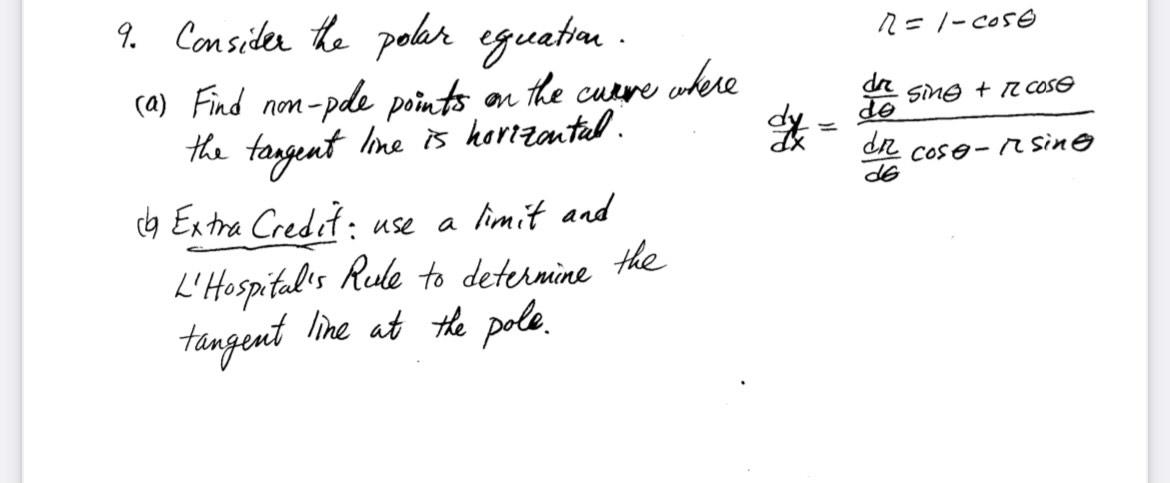 9. Consider the polar equation.
r = 1 - cosθ
(a) Find non-pole points on the curve where
the tangent line is horizontal.
dy/dx = (dr/dθ sinθ + r cosθ) / (dr/dθ cosθ - r sinθ)
(b) Extra Credit: use a limit and
L'Hospital's Rule to determine the
tangent line at the pole.